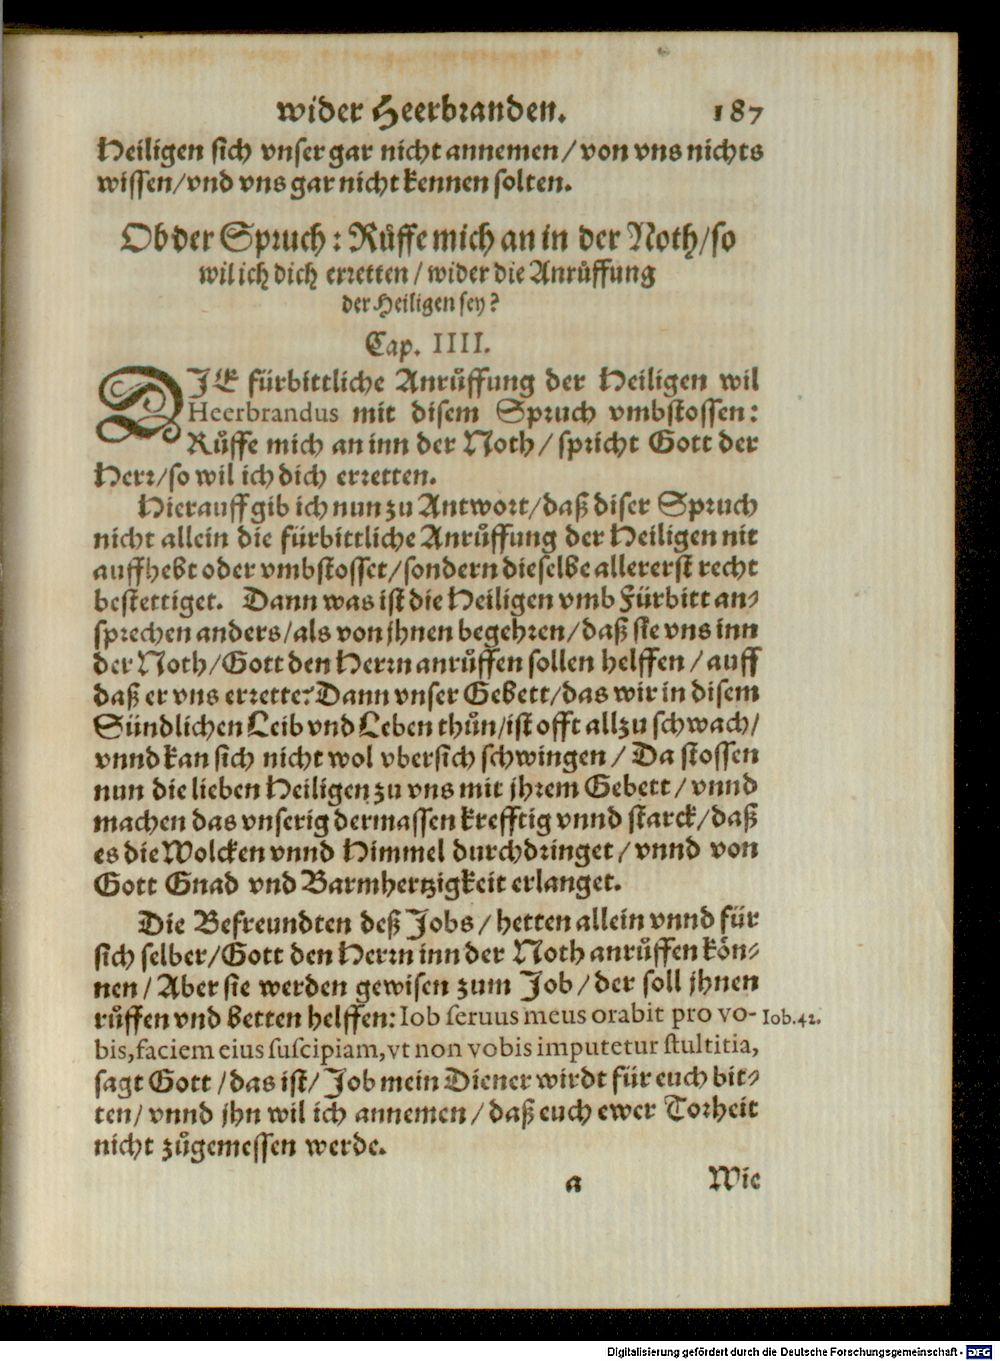 wider Heerbranden. 187
Heiligen sich vnser gar nicht annemen / von vns nichts
wissen / vnd vns gar nicht kennen solten.
Ob der Spruch : Růffe mich an in der Noth / so
wil ich dich erretten / wider die Anrůffung
der Heiligen sey?
Cap. IIII.
DIE fürbittliche Anrůffung der Heiligen wil
Heerbrandus mit disem Spruch vmbstossen:
Růffe mich an inn der Noth / spricht Gott der
Herr / so wil ich dich erretten.
Hierauff gib ich nun zu Antwort / daß diser Spruch
nicht allein die fürbittliche Anrůffung der Heiligen nit
auffhebt oder vmbstosset / sondern dieselbe allererst recht
bestettiget. Dann was ist die Heiligen vmb Fürbitt an-
sprechen anders / als von jhnen begehren / daß sie vns inn
der Noth / Gott den Herrn anrůffen sollen helffen / auff
daß er vns errette? Dann vnser Gebett / das wir in disem
Sündlichen Leib vnd Leben thůn / ist offt allzu schwach /
vnnd kan sich nicht wol vbersich schwingen / Da stossen
nun die lieben Heiligen zu vns mit jhrem Gebett / vnnd
machen das vnserig dermassen krefftig vnnd starck / daß
es die Wolcken vnnd Himmel durchdringet / vnnd von
Gott Gnad vnd Barmhertzigkeit erlanget.
Die Befreundten deß Jobs / hetten allein vnnd für
sich selber / Gott den Herrn inn der Noth anrůffen kön-
nen / Aber sie werden gewisen zum Job / der soll jhnen
růffen vnd betten helffen: Iob seruus meus orabit pro vo- Iob.42.
bis, faciem eius suscipiam, vt non vobis imputetur stultitia,
sagt Gott / das ist / Job mein Diener wirdt für euch bit-
ten / vnnd jhn wil ich annemen / daß euch ewer Torheit
nicht zůgemessen werde.
a Wie
Digitalisierung gefördert durch die Deutsche Forschungsgemeinschaft - DFG